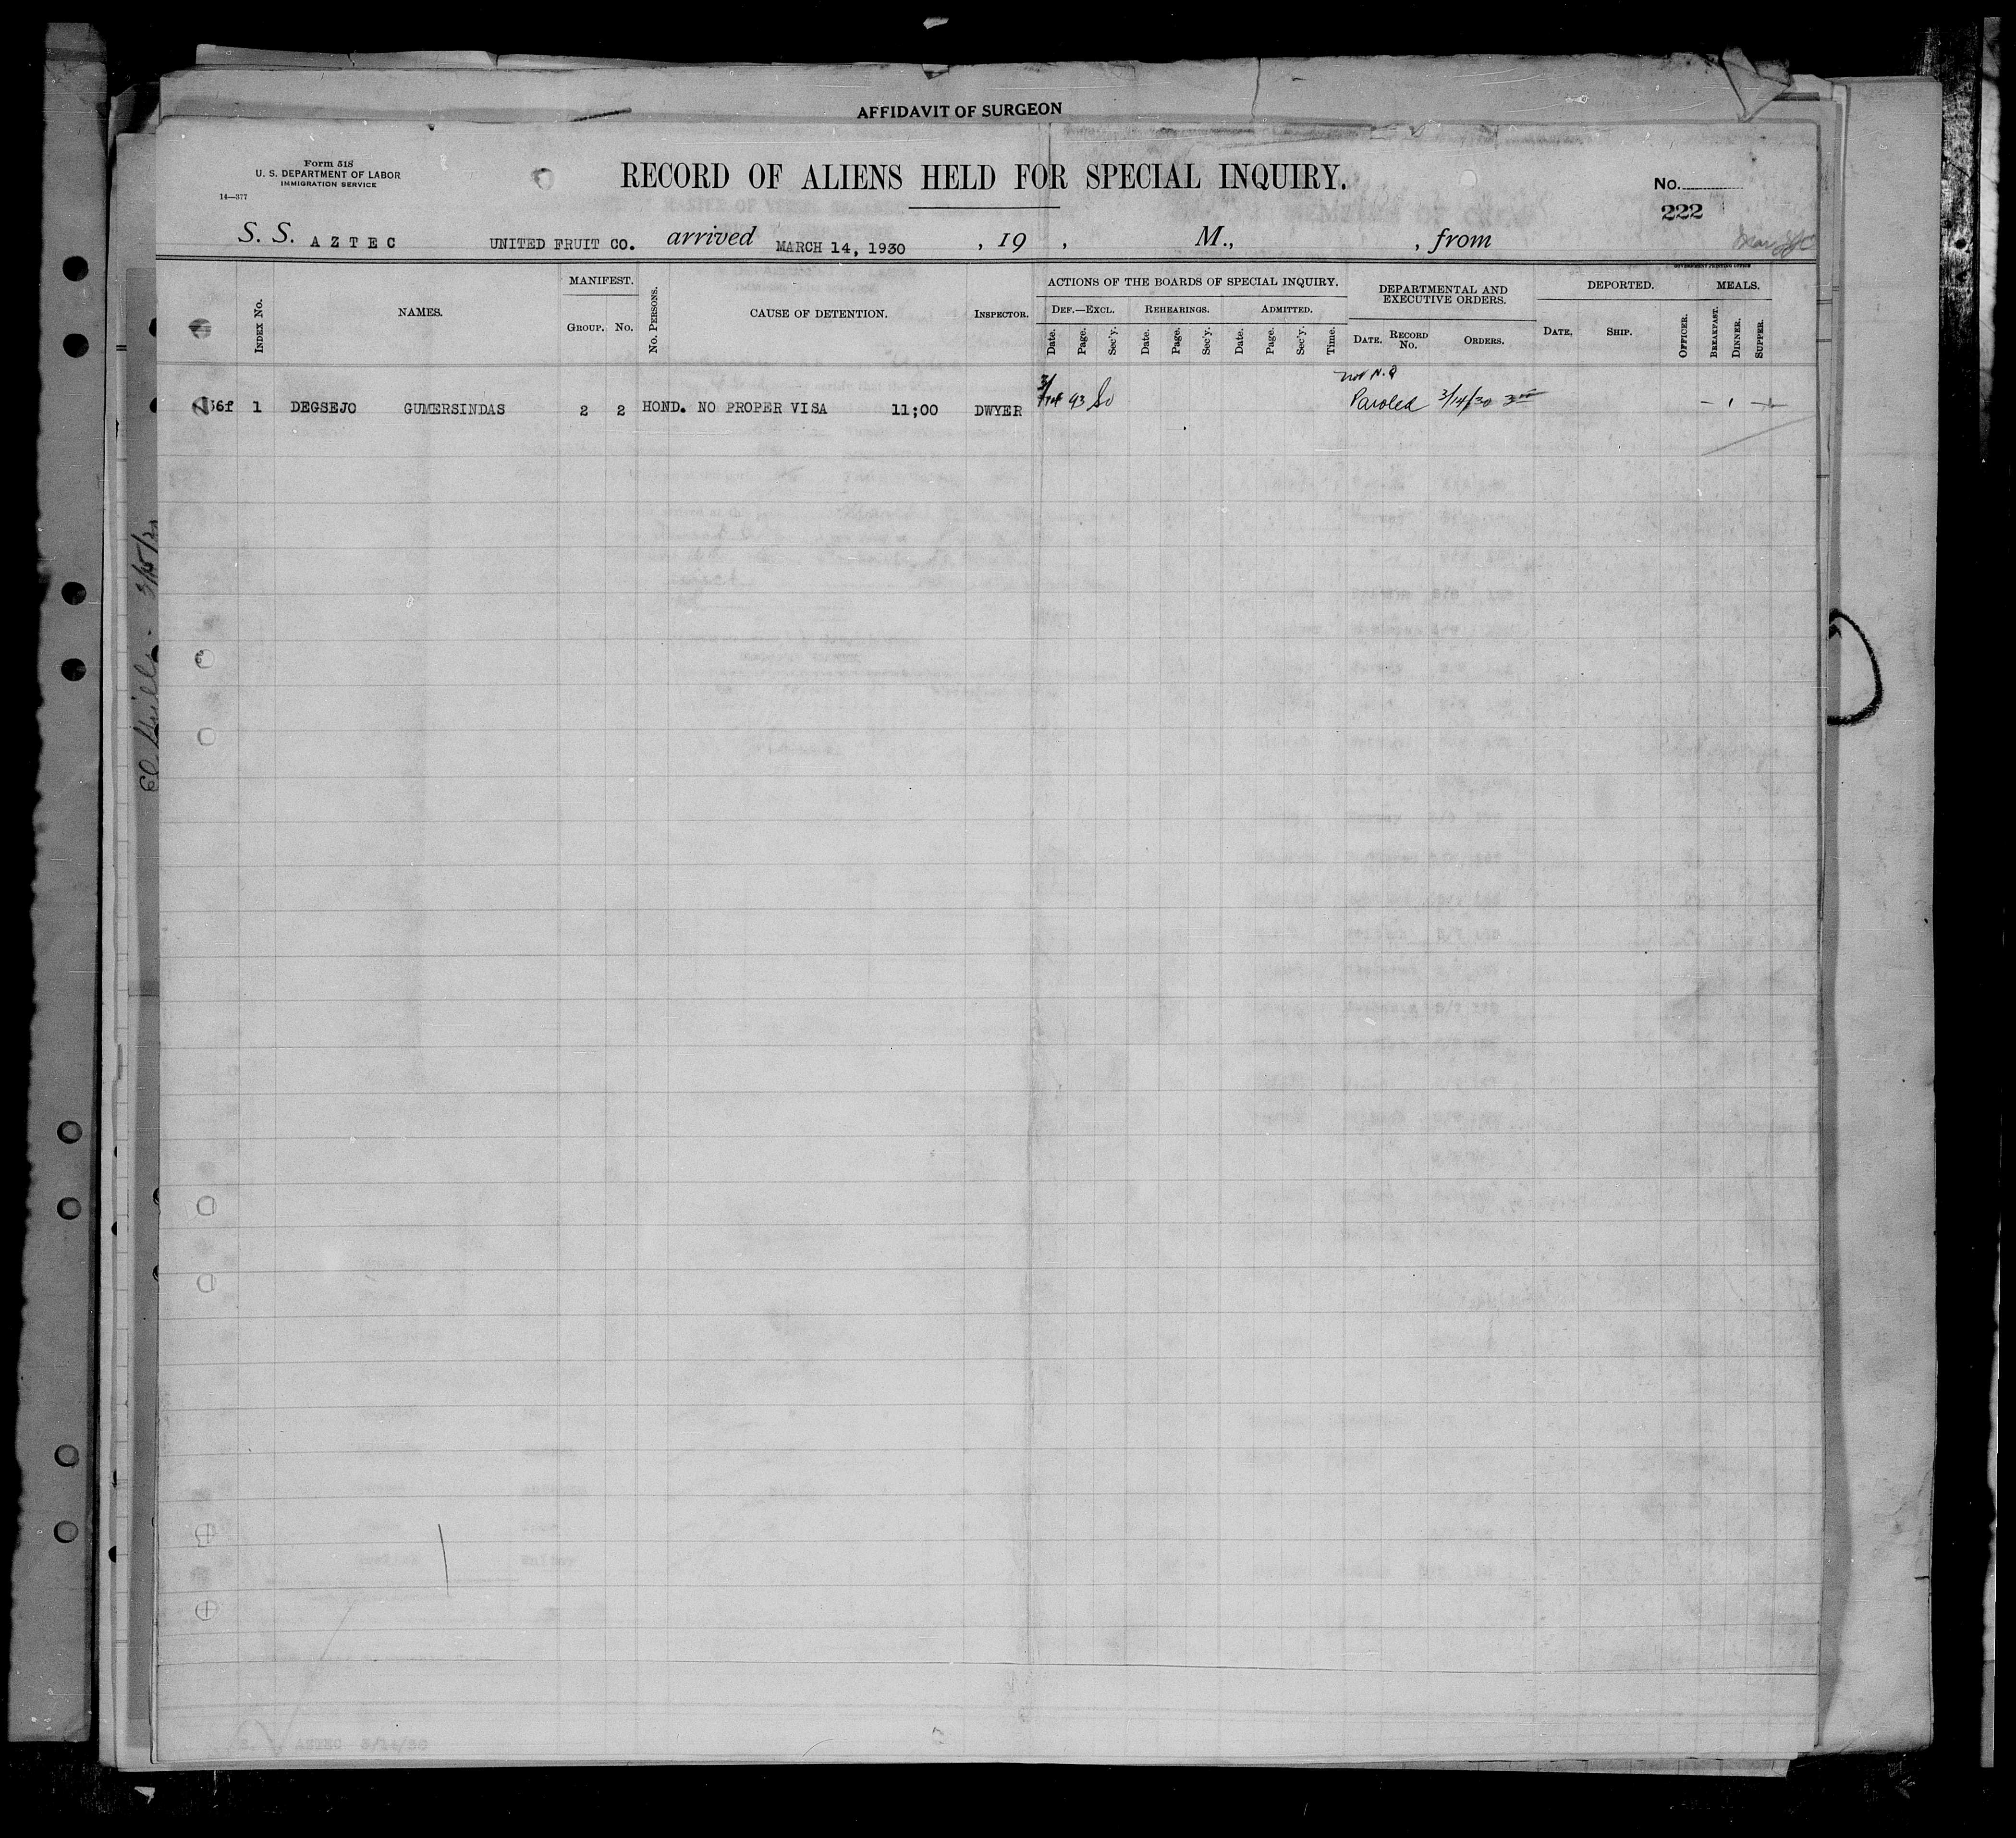 AFFIDAVIT OF SURGEON
Form 518
U. S. DEPARTMENT OF LABOR
IMMIGRATION SERVICE
14—377
RECORD OF ALIENS HELD FOR SPECIAL INQUIRY.
No.
222
S. S. AZTEC UNITED FRUIT CO. arrived MARCH 14, 1930 , 19 , M., , from
GOVERNMENT PRINTING OFFICE
INDEX No. NAMES. MANIFEST. GROUP. No. No. PERSONS. CAUSE OF DETENTION. INSPECTOR.
ACTIONS OF THE BOARDS OF SPECIAL INQUIRY.
DEF.—EXCL. REHEARINGS. ADMITTED.
Date. Page. Sec'y. Date. Page. Sec'y. Date. Page. Sec'y. Time.
DEPARTMENTAL AND EXECUTIVE ORDERS.
DATE. RECORD No. ORDERS.
DEPORTED.
DATE. SHIP. OFFICER.
MEALS.
BREAKFAST. DINNER. SUPPER.
56f 1 DEGSEJO GUMERSINDAS 2 2 HOND. NO PROPER VISA 11;00 DWYER 93 Paroled 3/14/30
AZTEC 3/14/30